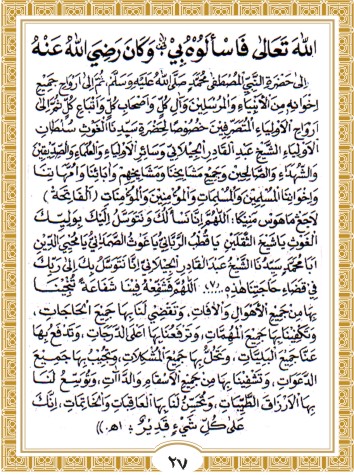 اللهَ تَعَالٰى فَاسْأَلُوْهُ بِيْ وَكَانَ رَضِيَ اللهُ عَنْهُ
إِلىٰ حَضْرَةِ النَّبِيِّ الْمُصْطَفٰى مُحَمَّدٍ صَلَّى اللهُ عَلَيْهِ وَسَلَّمَ، ثُمَّ إِلىٰ أَرْوَاحِ جَمِيْعِ
إِخْوَانِهِ مِنَ الْأَنْبِيَاءِ وَالْمُرْسَلِيْنَ وَآلِ كُلٍّ وَأَصْحَابِ كُلٍّ وَأَتْبَاعِ كُلٍّ ثُمَّ إِلىٰ
أَرْوَاحِ الْأَوْلِيَاءِ الْمُتَصَرِّفِيْنَ خُصُوْصًا لِحَضْرَةِ سَيِّدِنَا الْغَوْثِ سُلْطَانِ
الْأَوْلِيَاءِ الشَّيْخِ عَبْدِ الْقَادِرِ الْجِيْلَانِي وَسَائِرِ الْأَوْلِيَاءِ وَالْعُلَمَاءِ وَالصِّدِّيْقِيْنَ
وَالشُّهَدَاءِ وَالصَّالِحِيْنَ وَجَمِيْعِ مَشَايِخِنَا وَمَشَايِخِهِمْ وَآبَائِنَا وَأُمَّهَاتِنَا
وَإِخْوَانِنَا الْمُسْلِمِيْنَ وَالْمُسْلِمَاتِ وَالْمُؤْمِنِيْنَ وَالْمُؤْمِنَاتِ (الْفَاتِحَةُ)
لَاجَعْ مَاهَوْسْ مَنِيكَا: اَللّٰهُمَّ إِنَّا نَسْأَلُكَ وَنَتَوَسَّلُ إِلَيْكَ بِوَلِيِّكَ
الْغَوْثِ يَا شَيْخَ الثَّقَلَيْنِ يَا قُطْبَ الرَّبَّانِيِّ يَا غَوْثَ الصَّمَدَانِيِّ يَا مُحْيِيَ الدِّيْنِ
أَبَا مُحَمَّدٍ سَيِّدَنَا الشَّيْخَ عَبْدَ الْقَادِرِ الْجِيْلَانِي إِنَّا نَتَوَسَّلُ بِكَ إِلىٰ رَبِّكَ
فِيْ قَضَاءِ حَاجَتِنَا هٰذِهِ اَللّٰهُمَّ فَشَفِّعْهُ فِيْنَا شَفَاعَةً تُنْجِيْنَا
بِهَا مِنْ جَمِيْعِ الْأَهْوَالِ وَالْآفَاتِ، وَتَقْضِيْ لَنَا بِهَا جَمِيْعَ الْحَاجَاتِ،
وَتَكْفِيْنَا بِهَا جَمِيْعَ الْمُهِمَّاتِ، وَتَرْفَعُنَا بِهَا أَعْلَى الدَّرَجَاتِ، وَتَدْفَعُ بِهَا
عَنَّا جَمِيْعَ الْبَلِيَّاتِ، وَتَحُلُّ بِهَا جَمِيْعَ الْمُشْكِلَاتِ، وَتُجِيْبُ بِهَا جَمِيْعَ
الدَّعَوَاتِ، وَتَشْفِيْنَا بِهَا مِنْ جَمِيْعِ الْأَسْقَامِ وَالدَّآاتِ، وَتُوَسِّعُ لَنَا
بِهَا الْأَرْزَاقَ الطَّيِّبَاتِ، وَتُحَسِّنُ لَنَا بِهَا الْعَاقِبَاتِ وَالْخَاتِمَاتِ، إِنَّكَ
عَلىٰ كُلِّ شَيْءٍ قَدِيْرٌ. اهـ.
٢٧